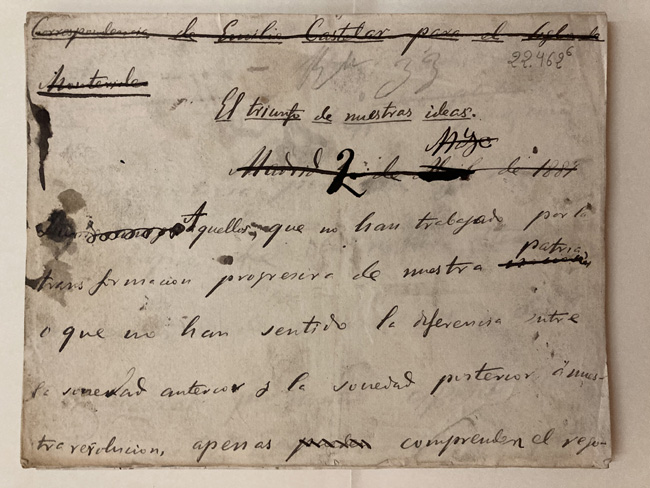 Correspondencia de Emilio Castelar para el Siglo de
Montevideo
22.462⁶
33
El triunfo de nuestras ideas.
Mayo
Madrid 2 de Abril de 1881
Aquellos, que no han trabajado por la
patria
transformacion progresiva de nuestra
o que no han sentido la diferencia entre
la sociedad anterior y la sociedad posterior á nues-
tra revolucion, apenas pueden comprender el rego-